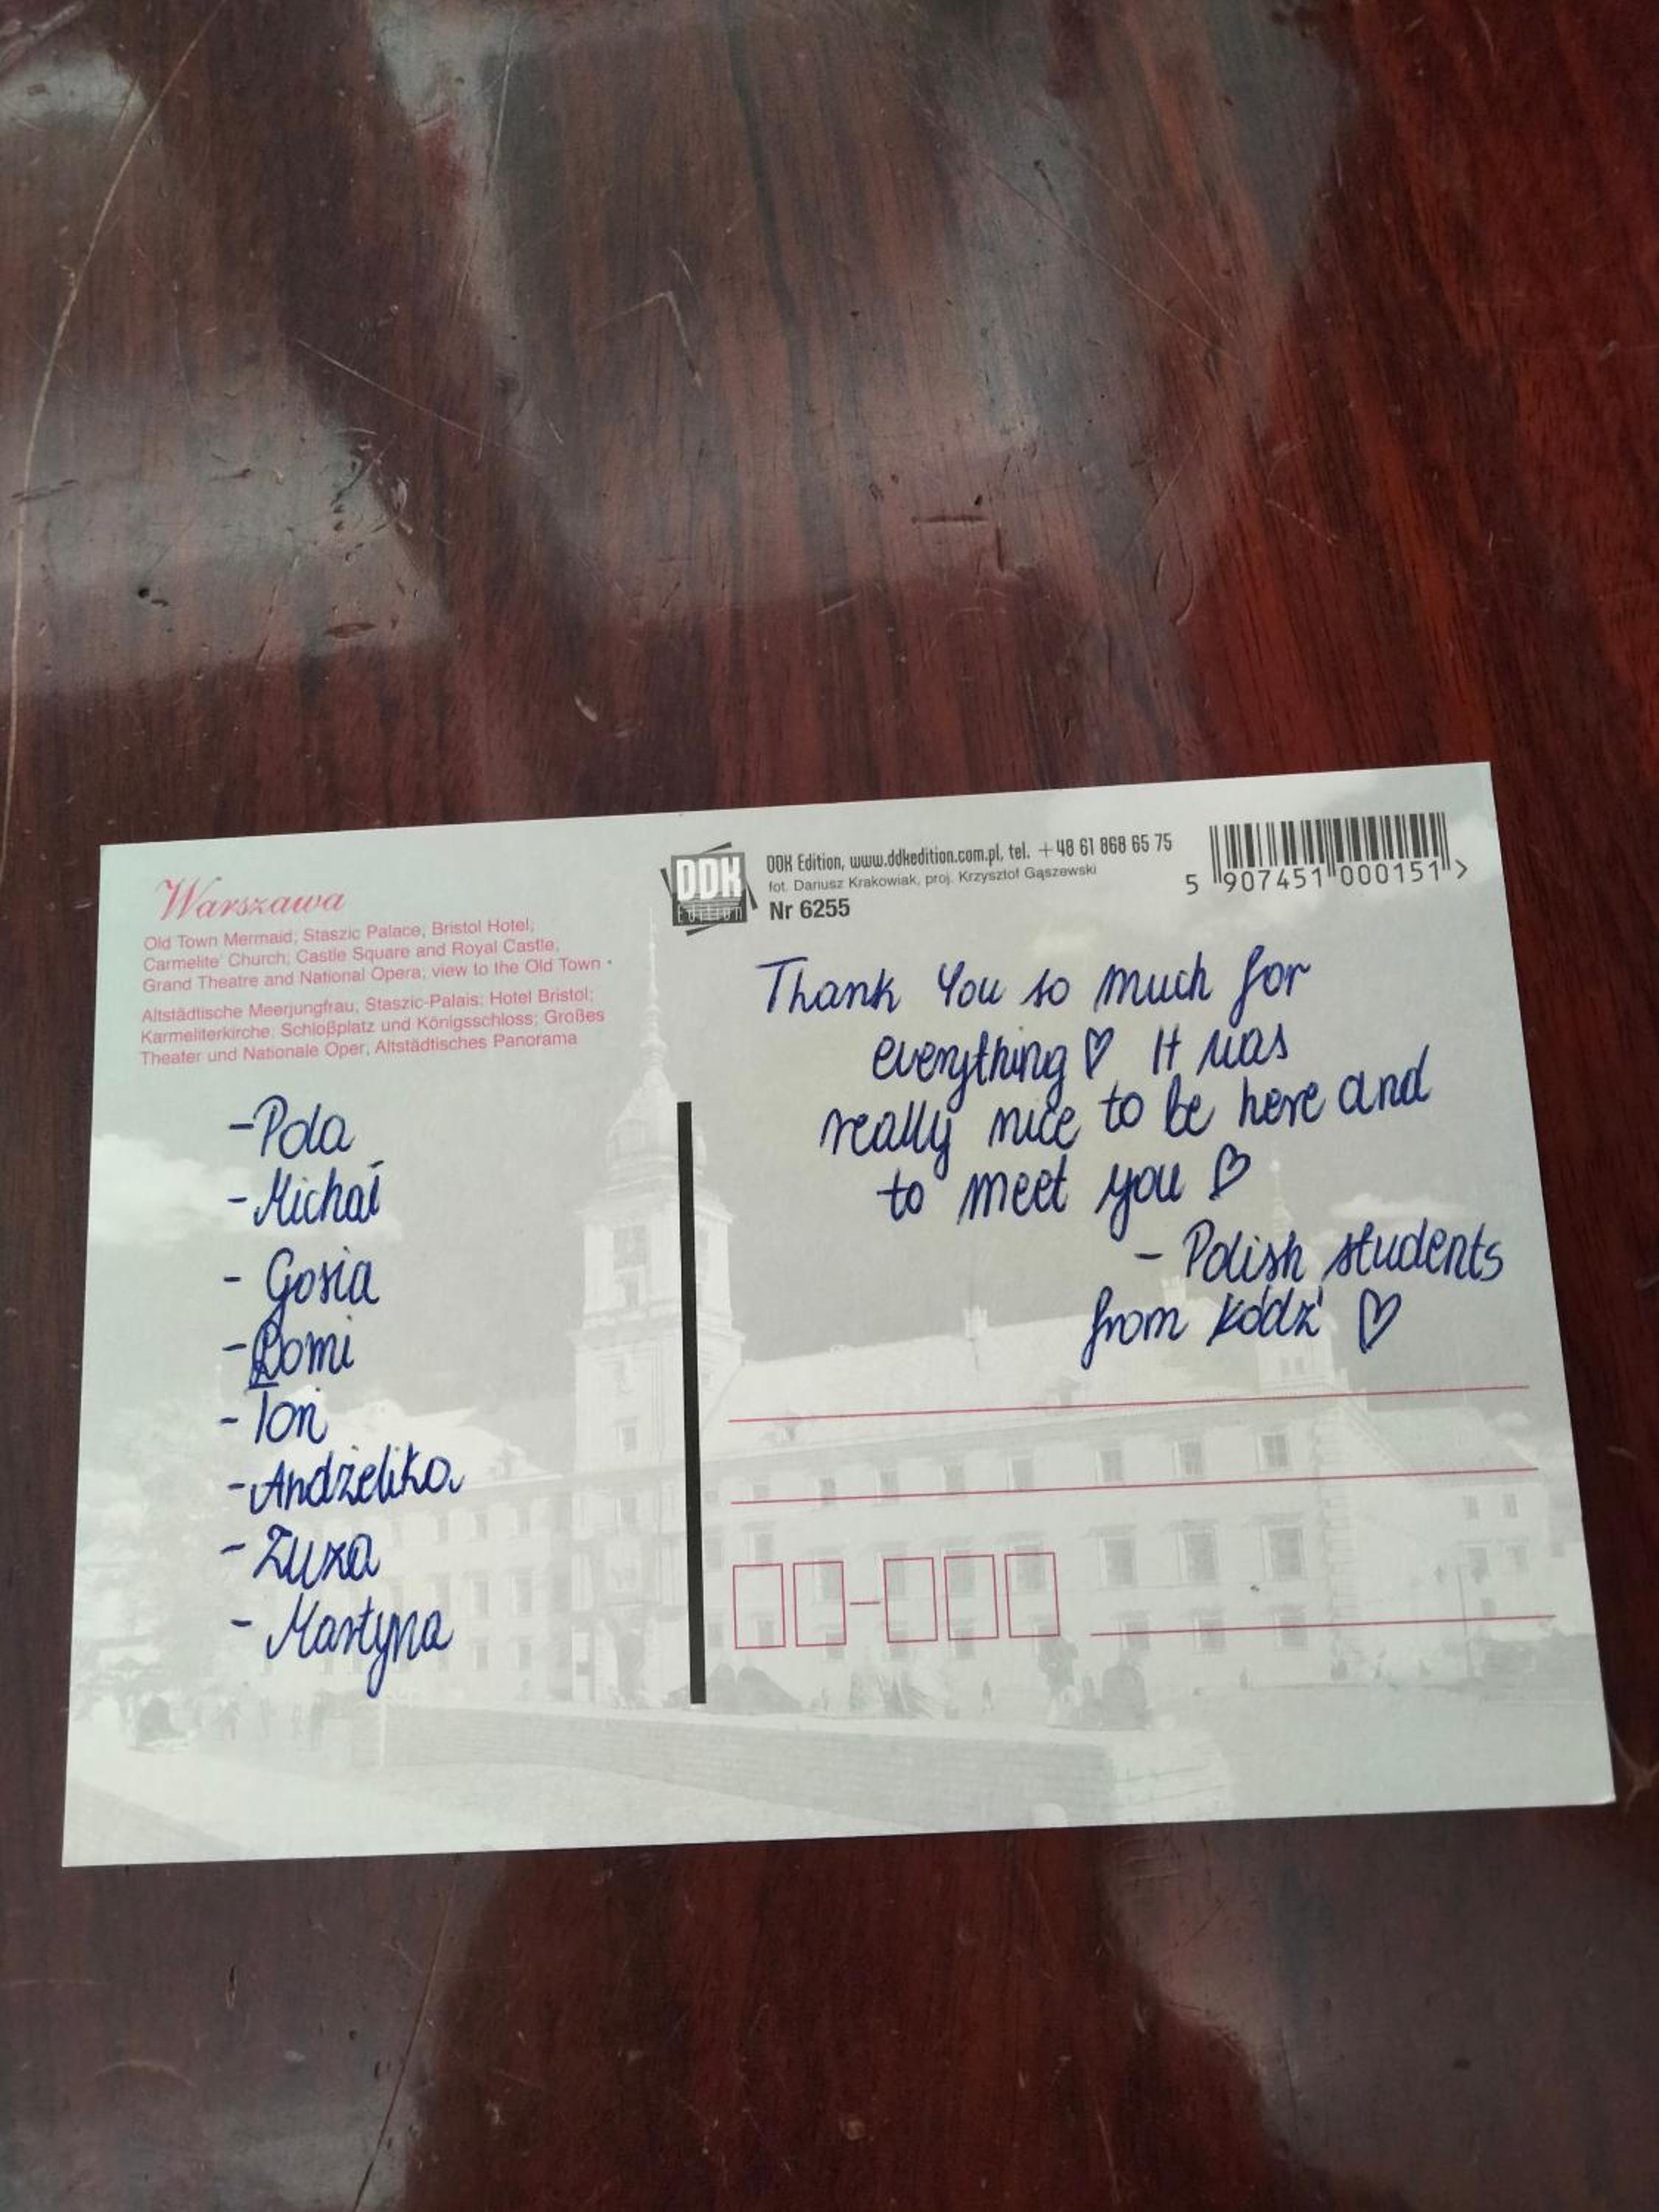 Warszawa
Old Town Mermaid; Staszic Palace, Bristol Hotel;
Carmelite' Church; Castle Square and Royal Castle,
Grand Theatre and National Opera, view to the Old Town •
Altstädtische Meerjungfrau, Staszic-Palais; Hotel Bristol;
Karmeliterkirche; Schloßplatz und Königsschloss; Großes
Theater und Nationale Oper, Altstädtisches Panorama
- Pola
- Michał
- Gosia
- Domi
- Ton
- Andżelika
- Zuza
- Martyna
DDK
Edition
DDK Edition, www.ddkedition.com.pl, tel. +48 61 868 65 75
fot. Dariusz Krakowiak, proj. Krzysztof Gąszewski
Nr 6255
5 907451 000151 >
Thank You so much for
everything ♡ It was
really nice to be here and
to meet you ♡
- Polish students
from Łódź ♡